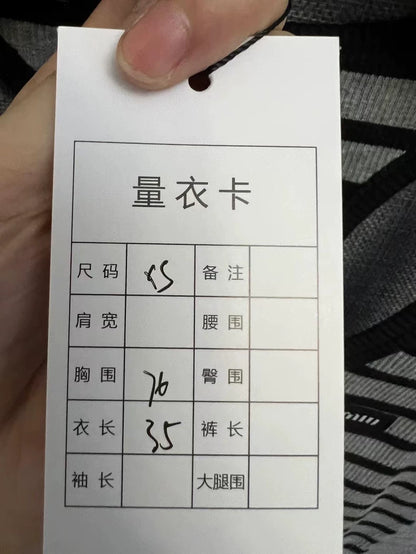 量衣卡
尺码 XS 备注
肩宽 腰围
胸围 76 臀围
衣长 35 裤长
袖长 大腿围